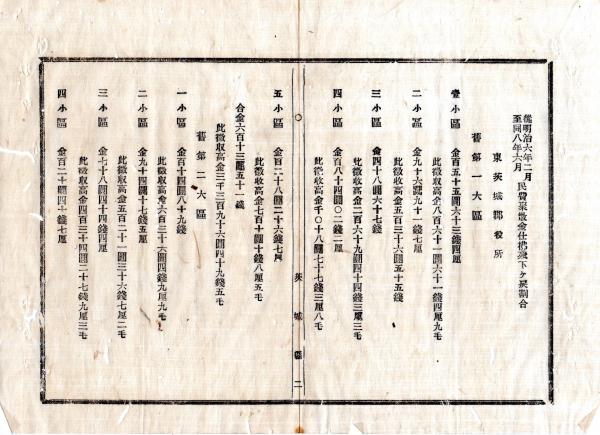 従明治六年二月
至同八年六月 民費聚散金仕拂残下ケ戻割合
東茨城郡役所
舊第一大區
壹小區 金百五十五圓六十三錢四厘
此徴取高金八百六十一圓六十一錢四厘九毛
二小區 金九十六圓九十一錢七厘
此徴收高金五百三十六圓五十五錢
三小區 金四十八圓六十七錢
此徴收高金二百六十九圓四十四錢三厘三毛
四小區 金百八十四圓〇二錢二厘
此徴收高金千〇十八圓七十七錢三厘八毛
茨城縣二
五小區 金百二十八圓二十六錢七厘
此徴收高金七百十圓十錢八厘五毛
合金六百十三圓五十一錢
此徴取高金三千三百九十六圓四十九錢五毛
舊第二大區
一小區 金百十四圓八十九錢
此徴取高金六百三十六圓四錢九厘九毛
二小區 金九十四圓十七錢五厘
此徴取高金五百二十一圓三十六錢七厘二毛
三小區 金七十八圓四十四錢四厘
此徴取高金四百三十四圓二十七錢九厘三毛
四小區 金百二十圓四十錢七厘